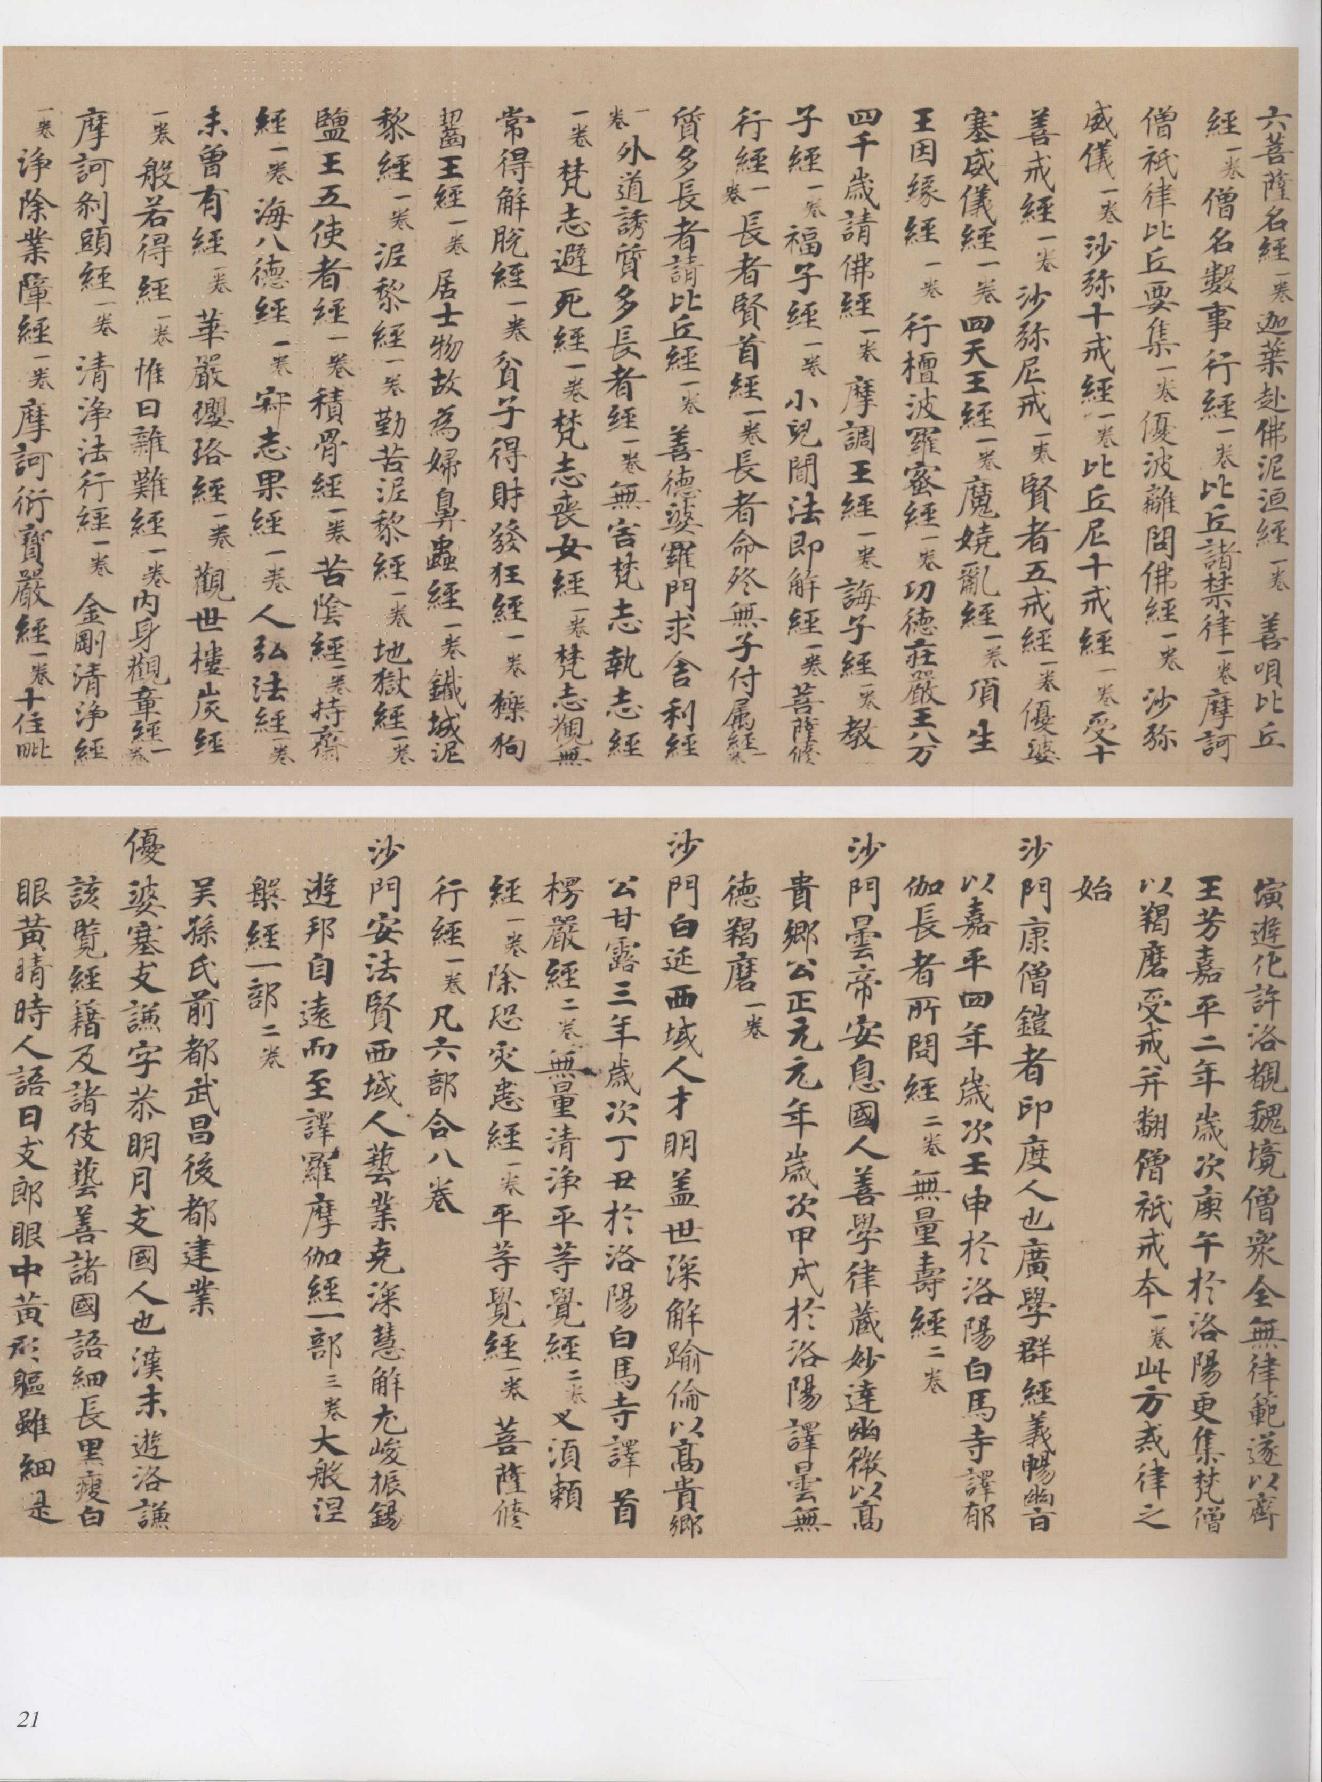 六菩薩名經一卷迦葉赴佛泥洹經一卷善唄比丘
經一卷僧名數事行經一卷比丘諸禁律一卷摩訶
僧祇律比丘要集一卷優波離問佛經一卷沙弥
威儀一卷沙弥十戒經一卷比丘尼十戒經一卷受十
善戒經一卷沙弥尼戒一卷賢者五戒經一卷優婆
塞威儀經一卷四天王經一卷魔嬈亂經一卷頂生
王因緣經一卷行檀波羅蜜經一卷功德莊嚴王八万
四千歲請佛經一卷摩調王經一卷誨子經一卷教
子經一卷福子經一卷小兒聞法即解經一卷菩薩脩
行經一卷長者賢首經一卷長者命終無子付属經一卷
質多長者請比丘經一卷善德婆羅門求舍利經
一卷外道誘質多長者經一卷無害梵志執志經
一卷梵志避死經一卷梵志喪女經一卷梵志觀無
常得解脫經一卷貧子得財發狂經一卷㹱狗
齧王經一卷居士物故為婦鼻蟲經一卷鐵城泥
黎經一卷泥黎經一卷勤苦泥黎經一卷地獄經一卷
鹽王五使者經一卷積骨經一卷苦陰經一卷持齋
經一卷海八德經一卷寀志果經一卷人弘法經一卷
未曾有經一卷華嚴瓔珞經一卷觀世樓炭經
一卷般若得經一卷惟曰雜難經一卷內身觀章經一卷
摩訶剎頭經一卷清淨法行經一卷金剛清淨經
一卷淨除業障經一卷摩訶衍寶嚴經一卷十住毗
寅遊化許洛覩魏境僧眾全無律範遂以齊
王芳嘉平二年歲次庚午於洛陽更集梵僧
以羯磨受戒并翻僧祇戒本一卷此方戒律之
始
沙門康僧鎧者印度人也廣學群經義暢幽旨
以嘉平四年歲次壬申於洛陽白馬寺譯郁
伽長者所問經二卷無量壽經二卷
沙門曇帝安息國人善學律藏妙達幽微以高
貴鄉公正元元年歲次甲戌於洛陽譯曇無
德羯磨一卷
沙門白延西域人才明盖世深解踰倫以高貴鄉
公甘露三年歲次丁丑於洛陽白馬寺譯首
楞嚴經二卷無量清淨平等覺經二卷叉須賴
經一卷除恐灾患經一卷平等覺經一卷菩薩脩
行經一卷凡六部合八卷
沙門安法賢西域人藝業克深慧解尤峻振錫
遊邦自遠而至譯羅摩伽經一部三卷大般涅
槃經一部二卷
吴孫氏前都武昌後都建業
優婆塞支謙字恭明月支國人也漢末遊洛謙
該覽經籍及諸伎藝善諸國語細長黑瘦白
眼黃睛時人語曰支郎眼中黃形軀雖細是
21